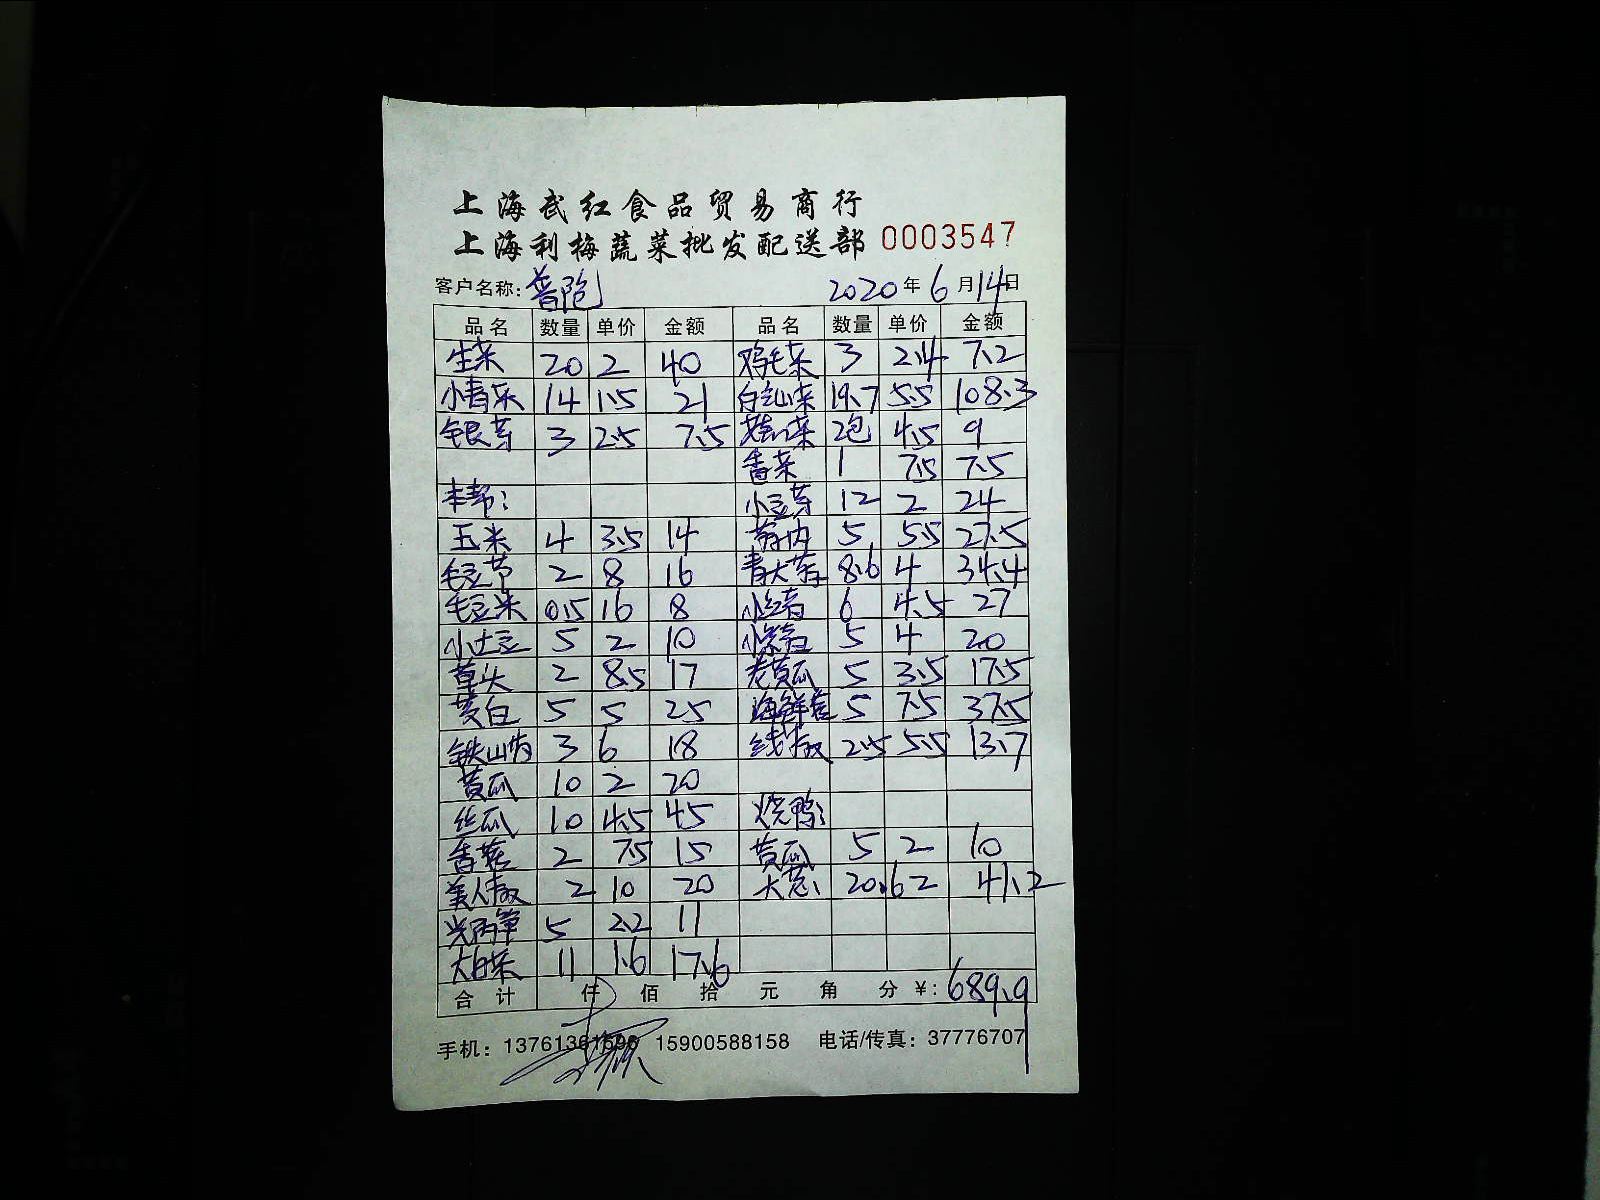 上海武红食品贸易商行
上海利梅蔬菜批发配送部 0003547
客户名称: 普陀 2020年6月14日
品名 数量 单价 金额 品名 数量 单价 金额
生菜 20 2 40 鸡毛菜 3 2.4 7.2
小青菜 14 1.5 21 19.7 5.5 108.3
银芽 3 2.5 7.5 2包 4.5 9
香菜 1 7.5 7.5
本帮: 小豆芽 12 2 24
玉米 4 3.5 14 5 5.5 27.5
毛豆节 2 8 16 8.6 4 34.4
毛豆米 0.5 16 8 6 4.5 27
小土豆 5 2 10 5 4 20
草头 2 8.5 17 老黄瓜 5 3.5 17.5
茭白 5 5 25 海鲜菇 5 7.5 37.5
铁山药 3 6 18 线椒 2.5 5.5 13.7
黄瓜 10 2 20
丝瓜 10 4.5 45 烧鸭:
香菇 2 7.5 15 黄瓜 5 2 10
美人椒 2 10 20 大葱 20.6 2 41.2
5 2.2 11
大白菜 11 1.6 17.6
合计 仟 佰 拾 元 角 分 ¥: 689.9
手机: 15900588158 电话/传真: 37776707